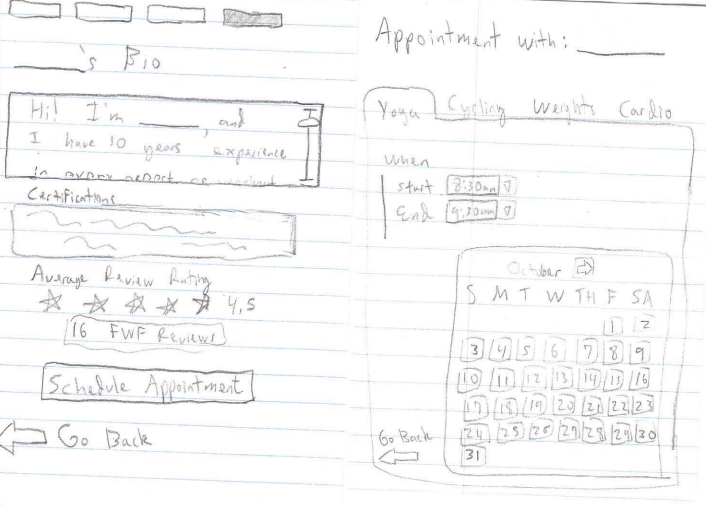 _____'s Bio
Hi! I'm _____, and
I have 10 years experience
in every aspect of
Certifications
Average Review Rating
4.5
16 FWF Reviews
Schedule Appointment
Go Back
Appointment with: _____
Yoga Cycling Weights Cardio
When
Start 8:30am
End 9:30am
October
S M T W TH F SA
1 2
3 4 5 6 7 8 9
10 11 12 13 14 15 16
17 18 19 20 21 22 23
24 25 26 27 28 29 30
31
Go Back